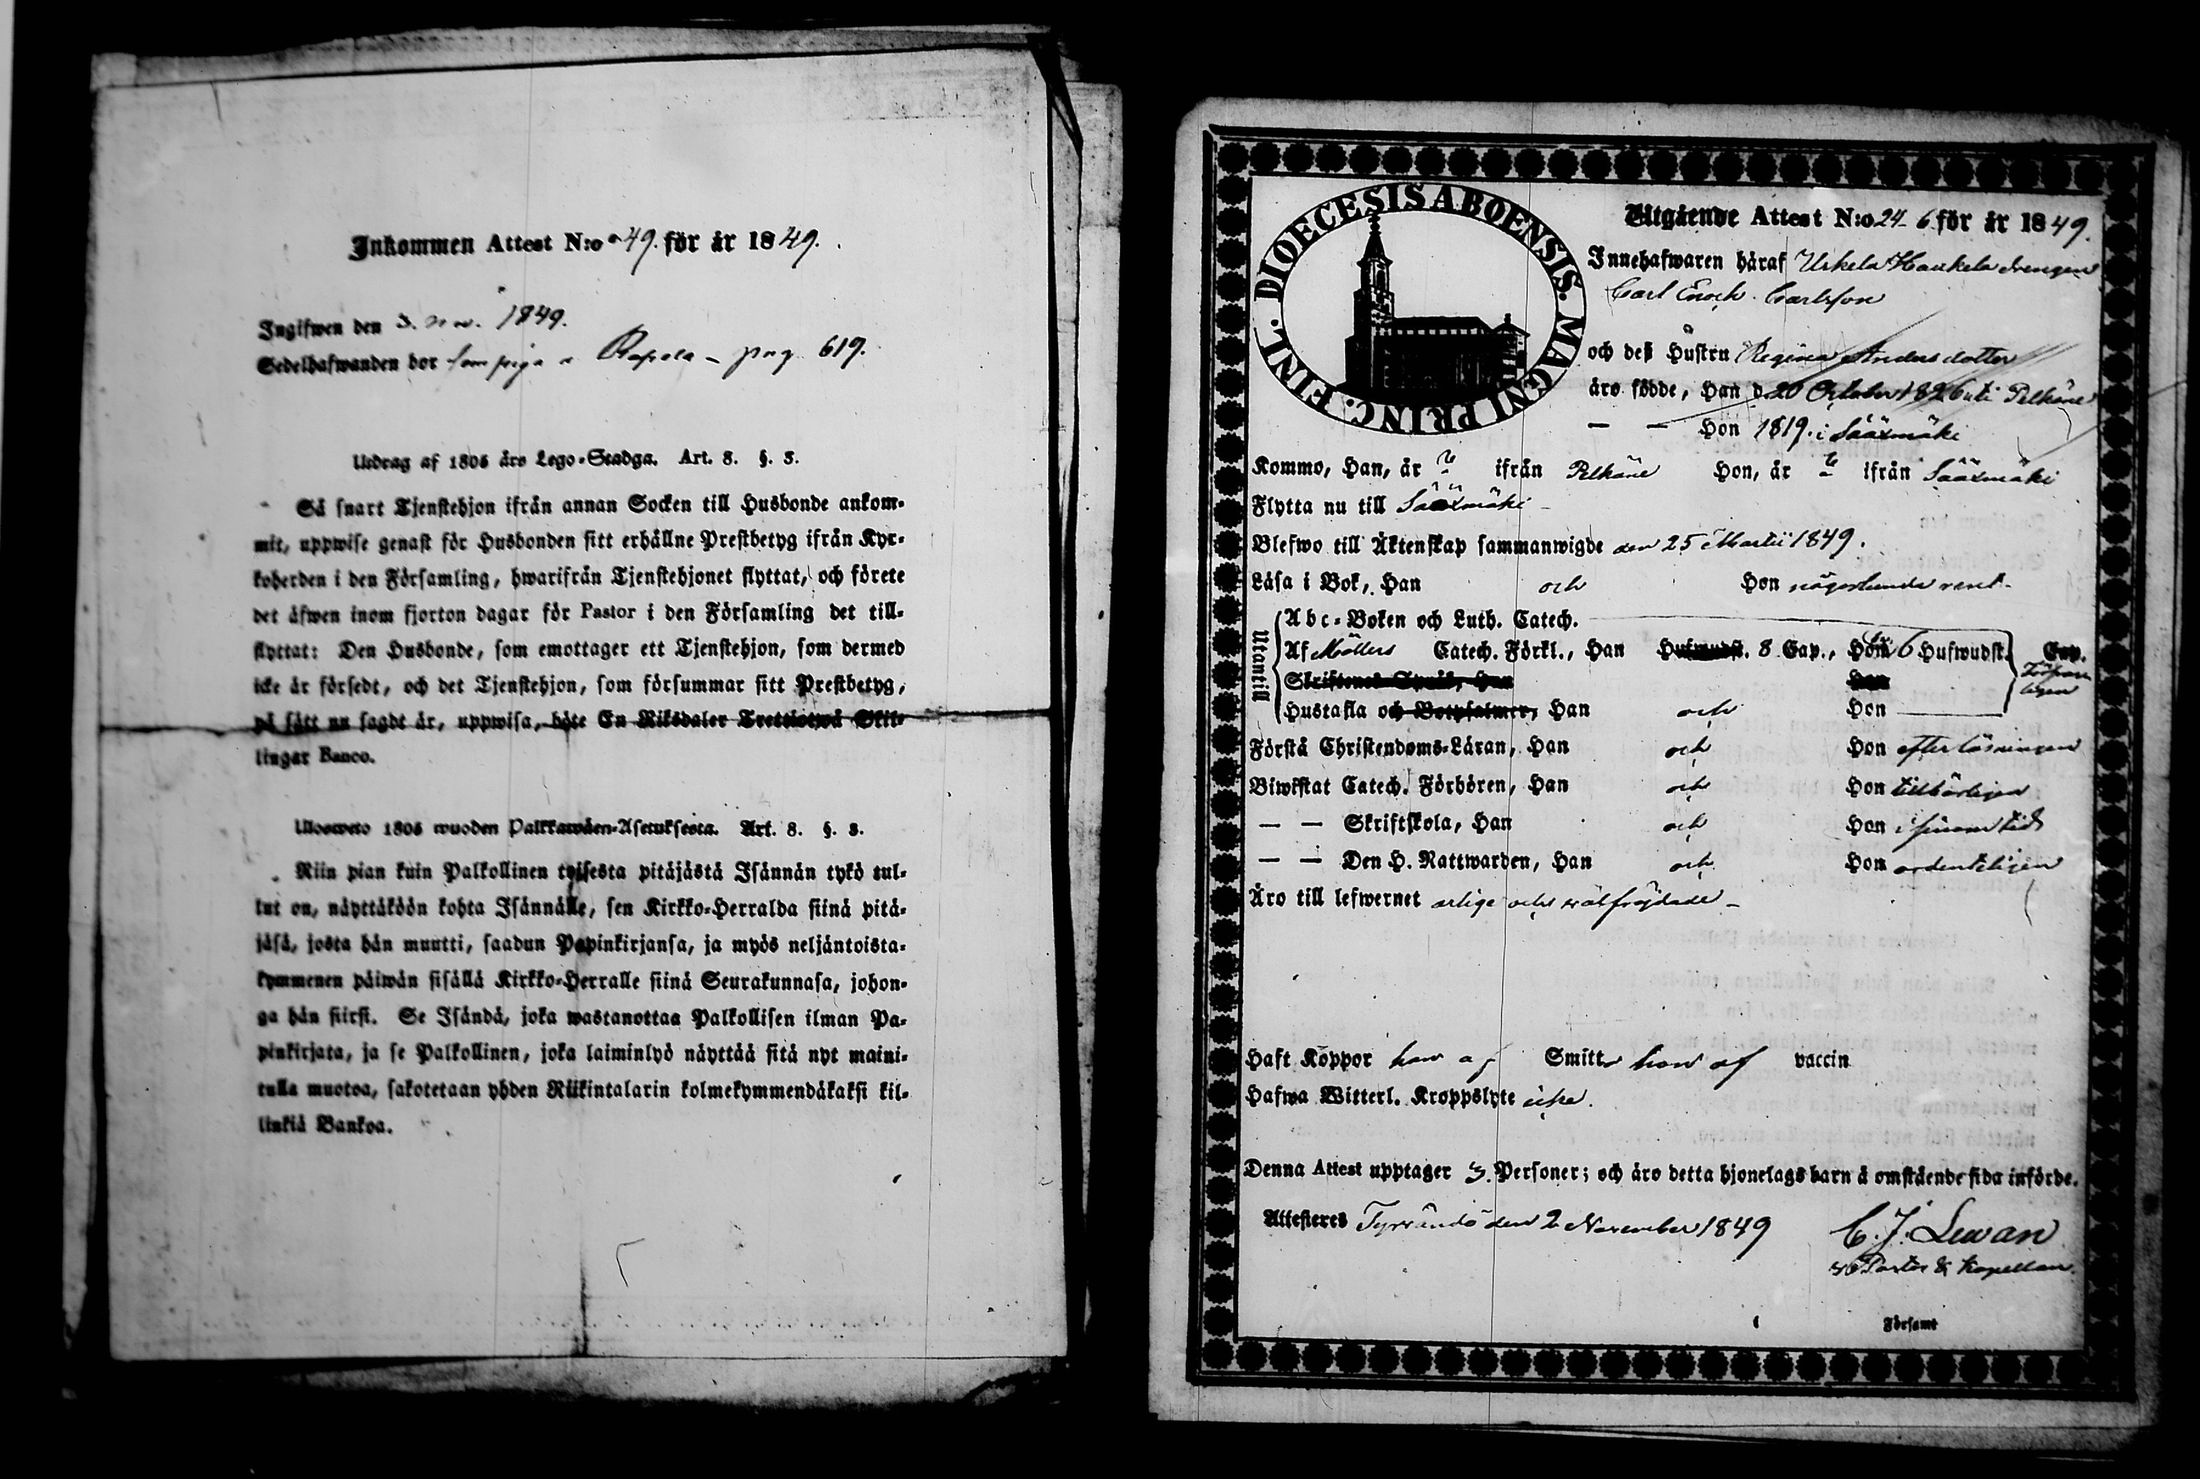 Inkommen Attest N:o 49. för år 1849.
Ingifwen den 3. Nov. 1849.
Sedelhafwanden bor som piga i Rapola - pag 619.
Utdrag af 1805 års Lego-Stadga. Art. 8. §. 3.
Så snart Tjenstehjon ifrån annan Socken till Husbonde ankom-
mit, uppwise genast för Husbonden sitt erhållne Prestbetyg ifrån Kyr-
koherden i den Församling, hwarifrån Tjenstehjonet flyttat, och förete
det äfwen inom fjorton dagar för Pastor i den Församling det till-
flyttat: Den Husbonde, som emottager ett Tjenstehjon, som dermed
icke är försedt, och det Tjenstehjon, som försummar sitt Prestbetyg,
på sätt nu sagdt är, uppwisa, böte En Riksdaler Trettiotwå Skil-
lingar Banco.
Ulosweto 1805 wuoden Palkkawäen-Asetuksesta. Art. 8. §. 3.
Niin pian kuin Palkollinen toisesta pitäjästä Isännän tykö tul-
lut on, näyttäköön kohta Isännälle, sen Kirkko-Herralda siinä pitä-
jäsä, josta hän muutti, saadun Papinkirjansa, ja myös neljäntoista-
kymmenen päiwän sisällä Kirkko-Herralle siinä Seurakunnasa, johon-
ga hän siirsi. Se Isändä, joka wastanottaa Palkollisen ilman Pa-
pinkirjata, ja se Palkollinen, joka laiminlyö näyttää sitä nyt maini-
tulla muotoa, sakotetaan yhden Riikintalarin kolmekymmendäkaksi kil-
linkiä Bankoa.
DIOECESIS ABOENSIS. MAGNI PRINC. FINL.
Utgående Attest N:o 24 6 för år 1849.
Innehafwaren häraf Urkela Haukela drengen
Carl Enoch Carlsson
och deß Hustru Regina Andersdotter
äro födde, Han d 20 October 1826 uti Pelkäne
— — Hon 1819. i Sääxmäki
Kommo, Han, år ifrån Pelkäne Hon, år ifrån Sääxmäki
Flytta nu till Sääxmäki
Blefwo till Äktenskap sammanwigde den 25 Martii 1849.
Läsa i Bok, Han och Hon någorlunda rent.
Utantill
Abc-Boken och Luth. Catech.
Af Möllers Catech. Förkl., Han Hufwudst. 8 Cap., Hon 6 Hufwudst. Cap.
Skriftenes Språk, Han Hon
Hustafla och Botpsalmer, Han och Hon
Förstå Christendoms-Läran, Han och Hon efter läsningen
Biwistat Catech. Förhören, Han och Hon tillbörligen
— — Skriftskola, Han och Hon i sinom tid
— — Den H. Nattwarden, Han och Hon ordenteligen
Äro till lefwernet ärlige och wälfrejdade
Haft Koppor hon af Smitt hon af vaccin
Hafwa Witterl. Kroppslyte icke.
Denna Attest upptager 3. Personer; och äro detta hjonelags barn å omstående sida införde.
Attesteres Tyrvändö den 2 November 1849
C. J. Lewan
Pastor & Kapellan.
Församl